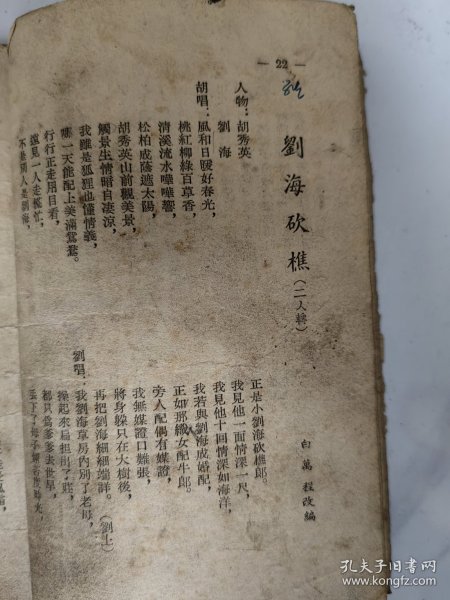 — 22 —
劉海砍樵(二人轉)
白萬程改編
人物：胡秀英
劉海
胡唱：風和日暖好春光，
桃紅柳綠百草香，
清溪流水嘩嘩響，
松柏成蔭遮太陽，
胡秀英山前觀美景，
觸景生情暗自凄涼，
我雖是狐狸也懂情義，
哪一天能配上美滿鴛鴦。
行行正走用目看，
遠見一人走慌忙，
不是別人是劉海，
正是小劉海砍樵郎。
我見他一面情深一尺，
我見他十回情深如海洋，
我若與劉海成婚配，
正如那織女配牛郎。
旁人配偶有媒證，
我無媒證口難張，
將身躲只在大樹後，
再把劉海細細端詳。(劉上)
劉唱：我劉海草房內別了老母，
操起來扁担出了莊，
都只為爹爹去世早，
丟下了母子
孔夫子旧书网
www.kongfz.com